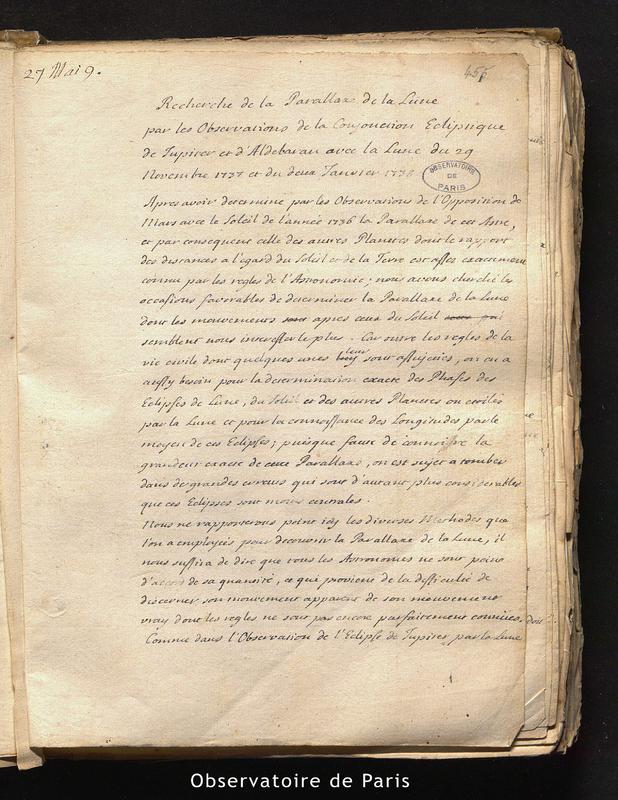 27 Mai 9.
455
Recherche de la Parallaxe de la Lune
par les Observations de la Conjonction Ecliptique
de Jupiter et d'Aldebaran avec la Lune du 29
Novembre 1737 et du deux Janvier 1738
OBSERVATOIRE
DE
PARIS
Apres avoir determine par les Observations de l'Opposition de
Mars avec le Soleil de l'année 1736 la Parallaxe de cet Astre,
et par consequent celle des autres Planetes dont le rapport
des distances a l'égard du Soleil et de la Terre est assés exactement
connu par les regles de l'Astronomie; nous avons cherché les
occasions favorables de determiner la Parallaxe de la Lune
dont les mouvements sont apres ceux du Soleil
semblent nous interesser le plus. Car outre les regles de la
vie civile dont quelques unes leur sont assujeties, on en a
aussy besoin pour la determination exacte des Phases des
Eclipses de Lune, du Soleil et des autres Planetes ou etoiles
par la Lune et pour la connoissance des Longitudes par le
moyen de ces Eclipses; puisque faute de connoistre la
grandeur exacte de cette Parallaxe, on est sujet a tomber
dans de grandes erreurs qui sont d'autant plus considerables
que ces Eclipses sont moins centrales.
Nous ne rapporterons point icy les diverses Methodes que
l'on a employées pour decouvrir la Parallaxe de la Lune, il
nous suffira de dire que tous les Astronomes ne sont point
d'accord de sa quantité, ce qui provient de la difficulté de
discerner son mouvement apparent de son mouvement
vray dont les regles ne sont pas encore parfaitement connües.
Comme dans l'Observation de l'Eclipse de Jupiter par la Lune
Observatoire de Paris